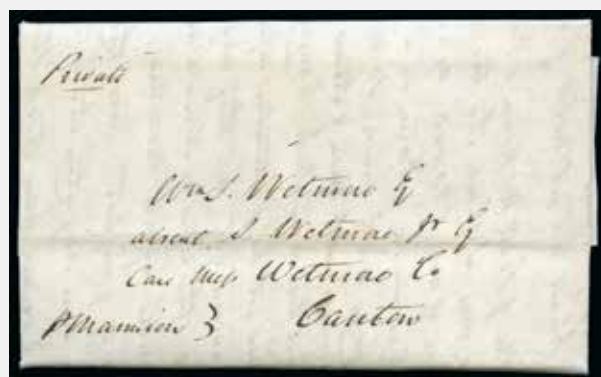 Private
Wm S. Wetmore Eq
absent S Wetmore Jr Eq
Care Messrs Wetmore Co
Canton